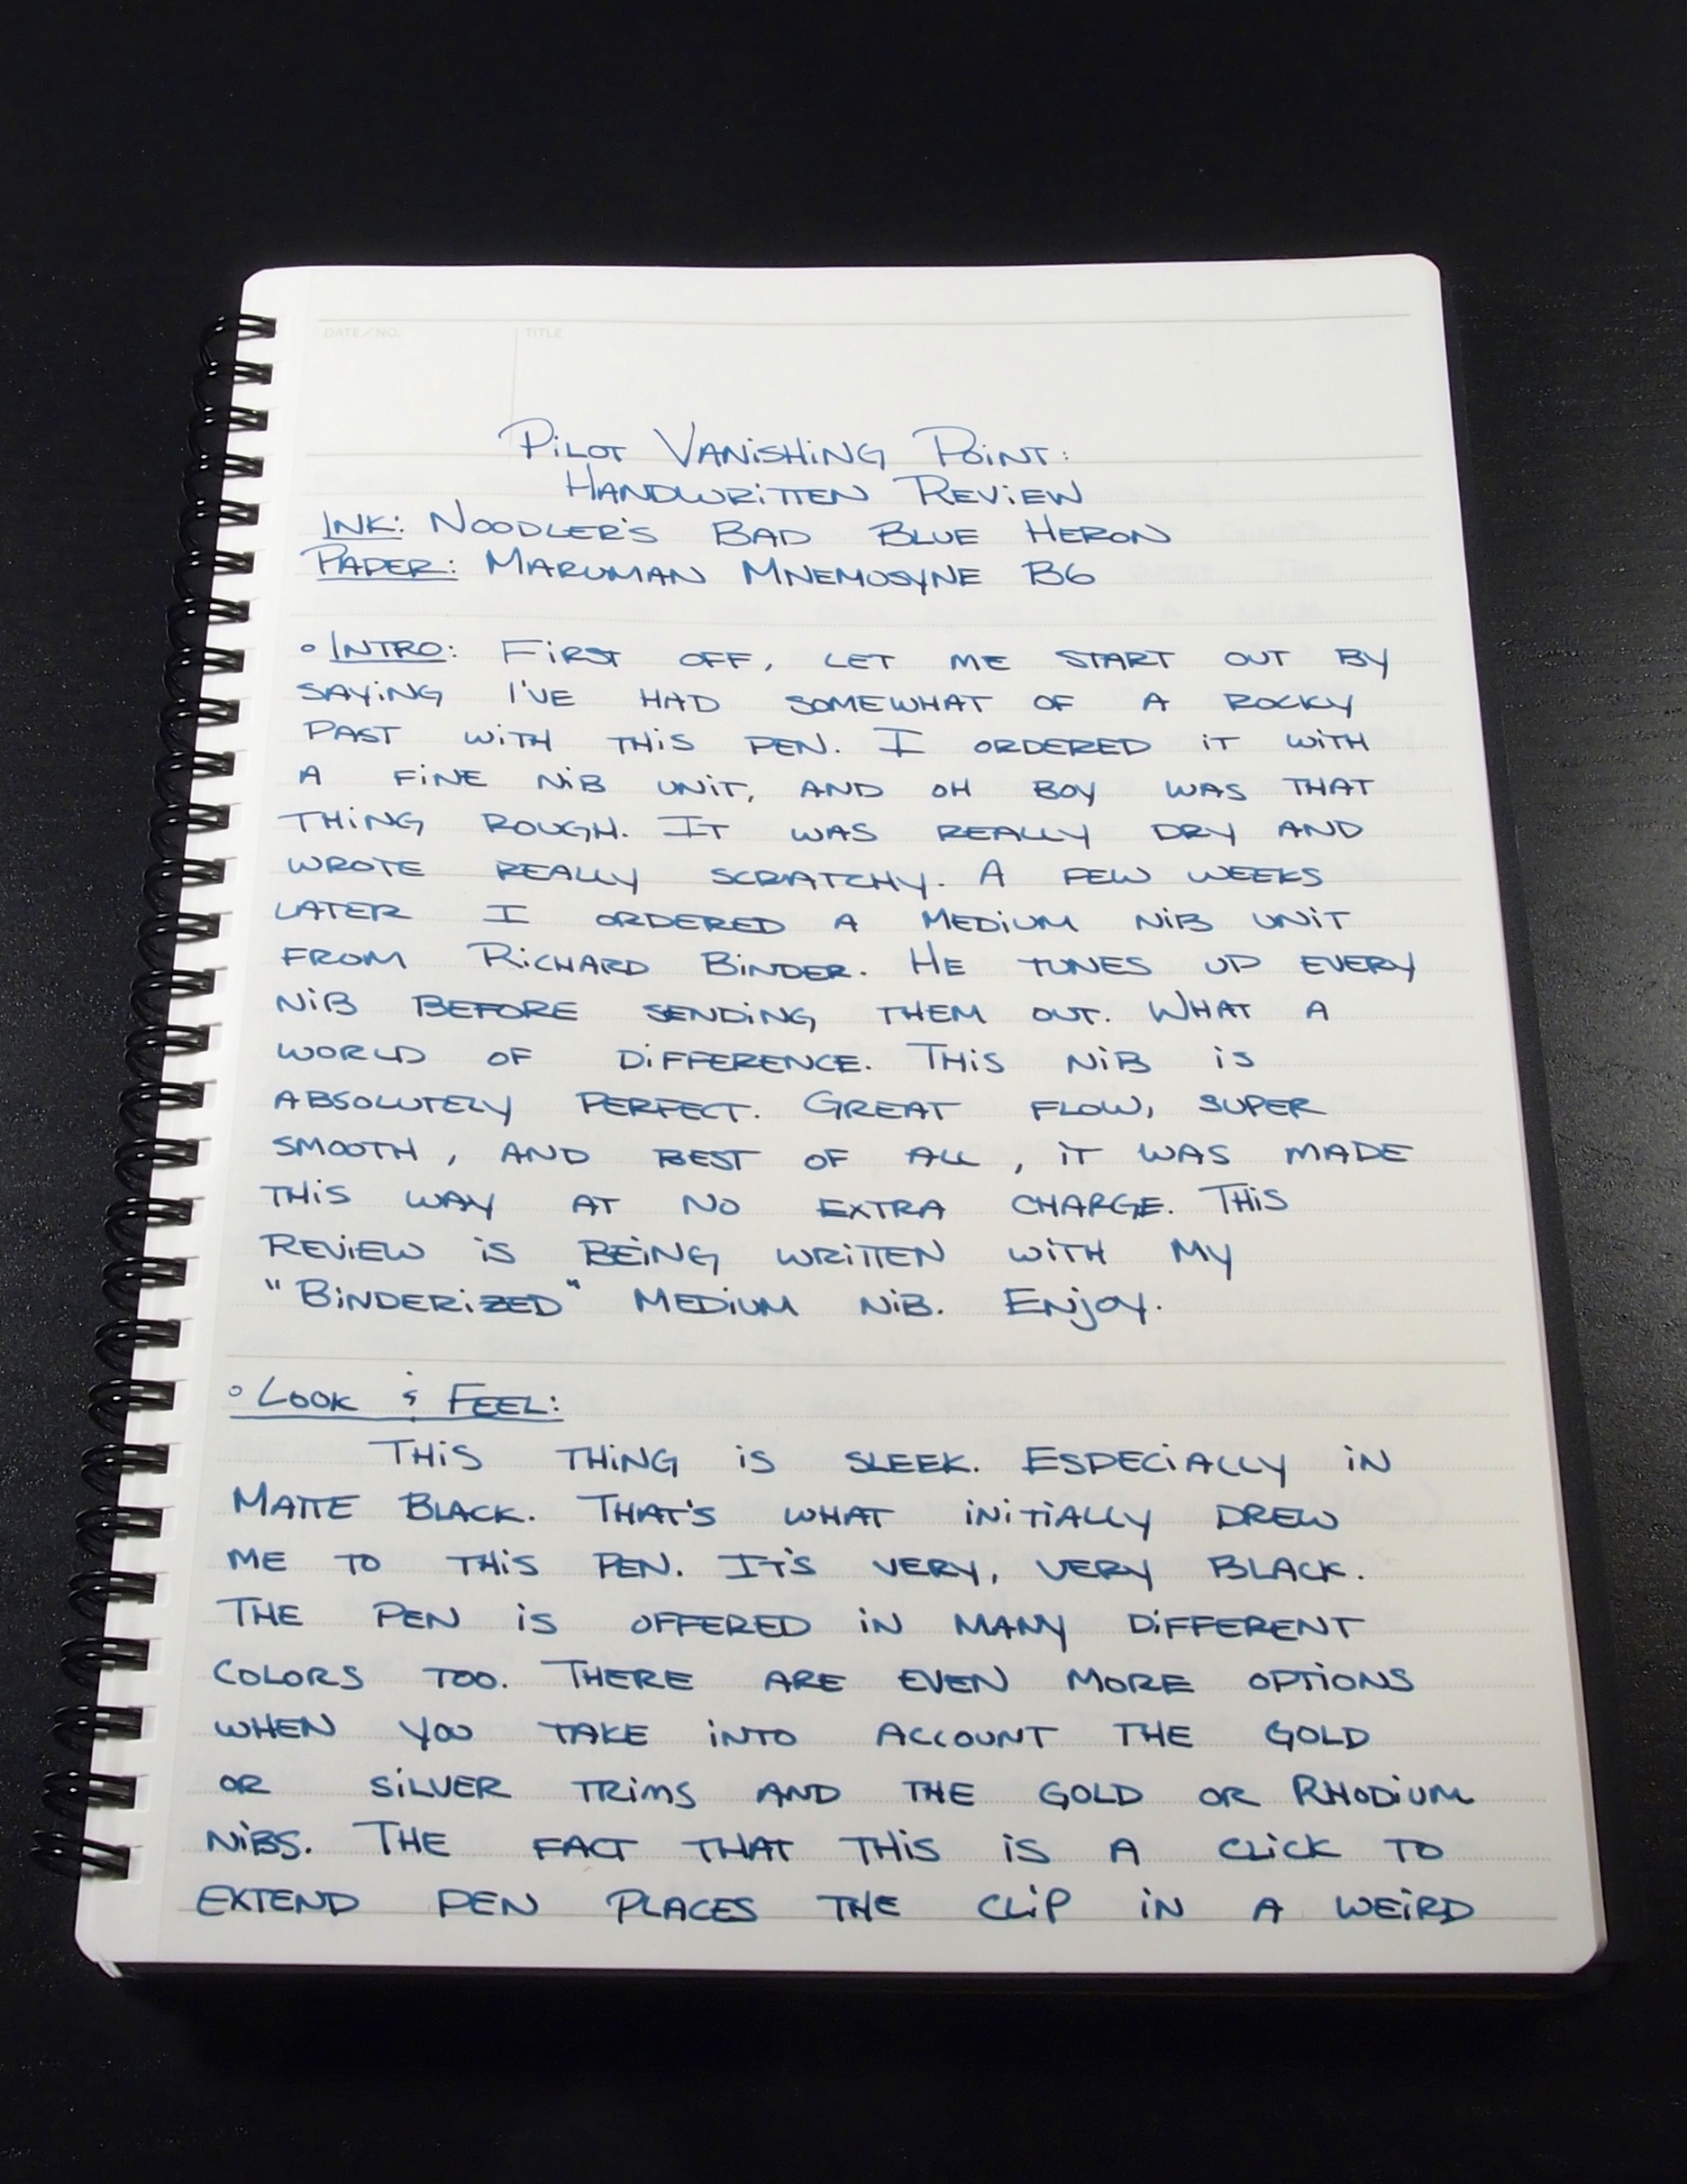 DATE/NO. TITLE
Pilot Vanishing Point:
Handwritten Review
Ink: Noodler's Bad Blue Heron
Paper: Maruman Mnemosyne B6
• Intro: First off, let me start out by
saying I've had somewhat of a rocky
past with this pen. I ordered it with
a fine nib unit, and oh boy was that
thing rough. It was really dry and
wrote really scratchy. A few weeks
later I ordered a medium nib unit
from Richard Binder. He tunes up every
nib before sending them out. What a
world of difference. This nib is
absolutely perfect. Great flow, super
smooth, and best of all, it was made
this way at no extra charge. This
review is being written with my
"Binderized" medium nib. Enjoy.
• Look & Feel:
This thing is sleek. Especially in
Matte Black. That's what initially drew
me to this pen. It's very, very black.
The pen is offered in many different
colors too. There are even more options
when you take into account the gold
or silver trims and the gold or Rhodium
nibs. The fact that this is a click to
extend pen places the clip in a weird